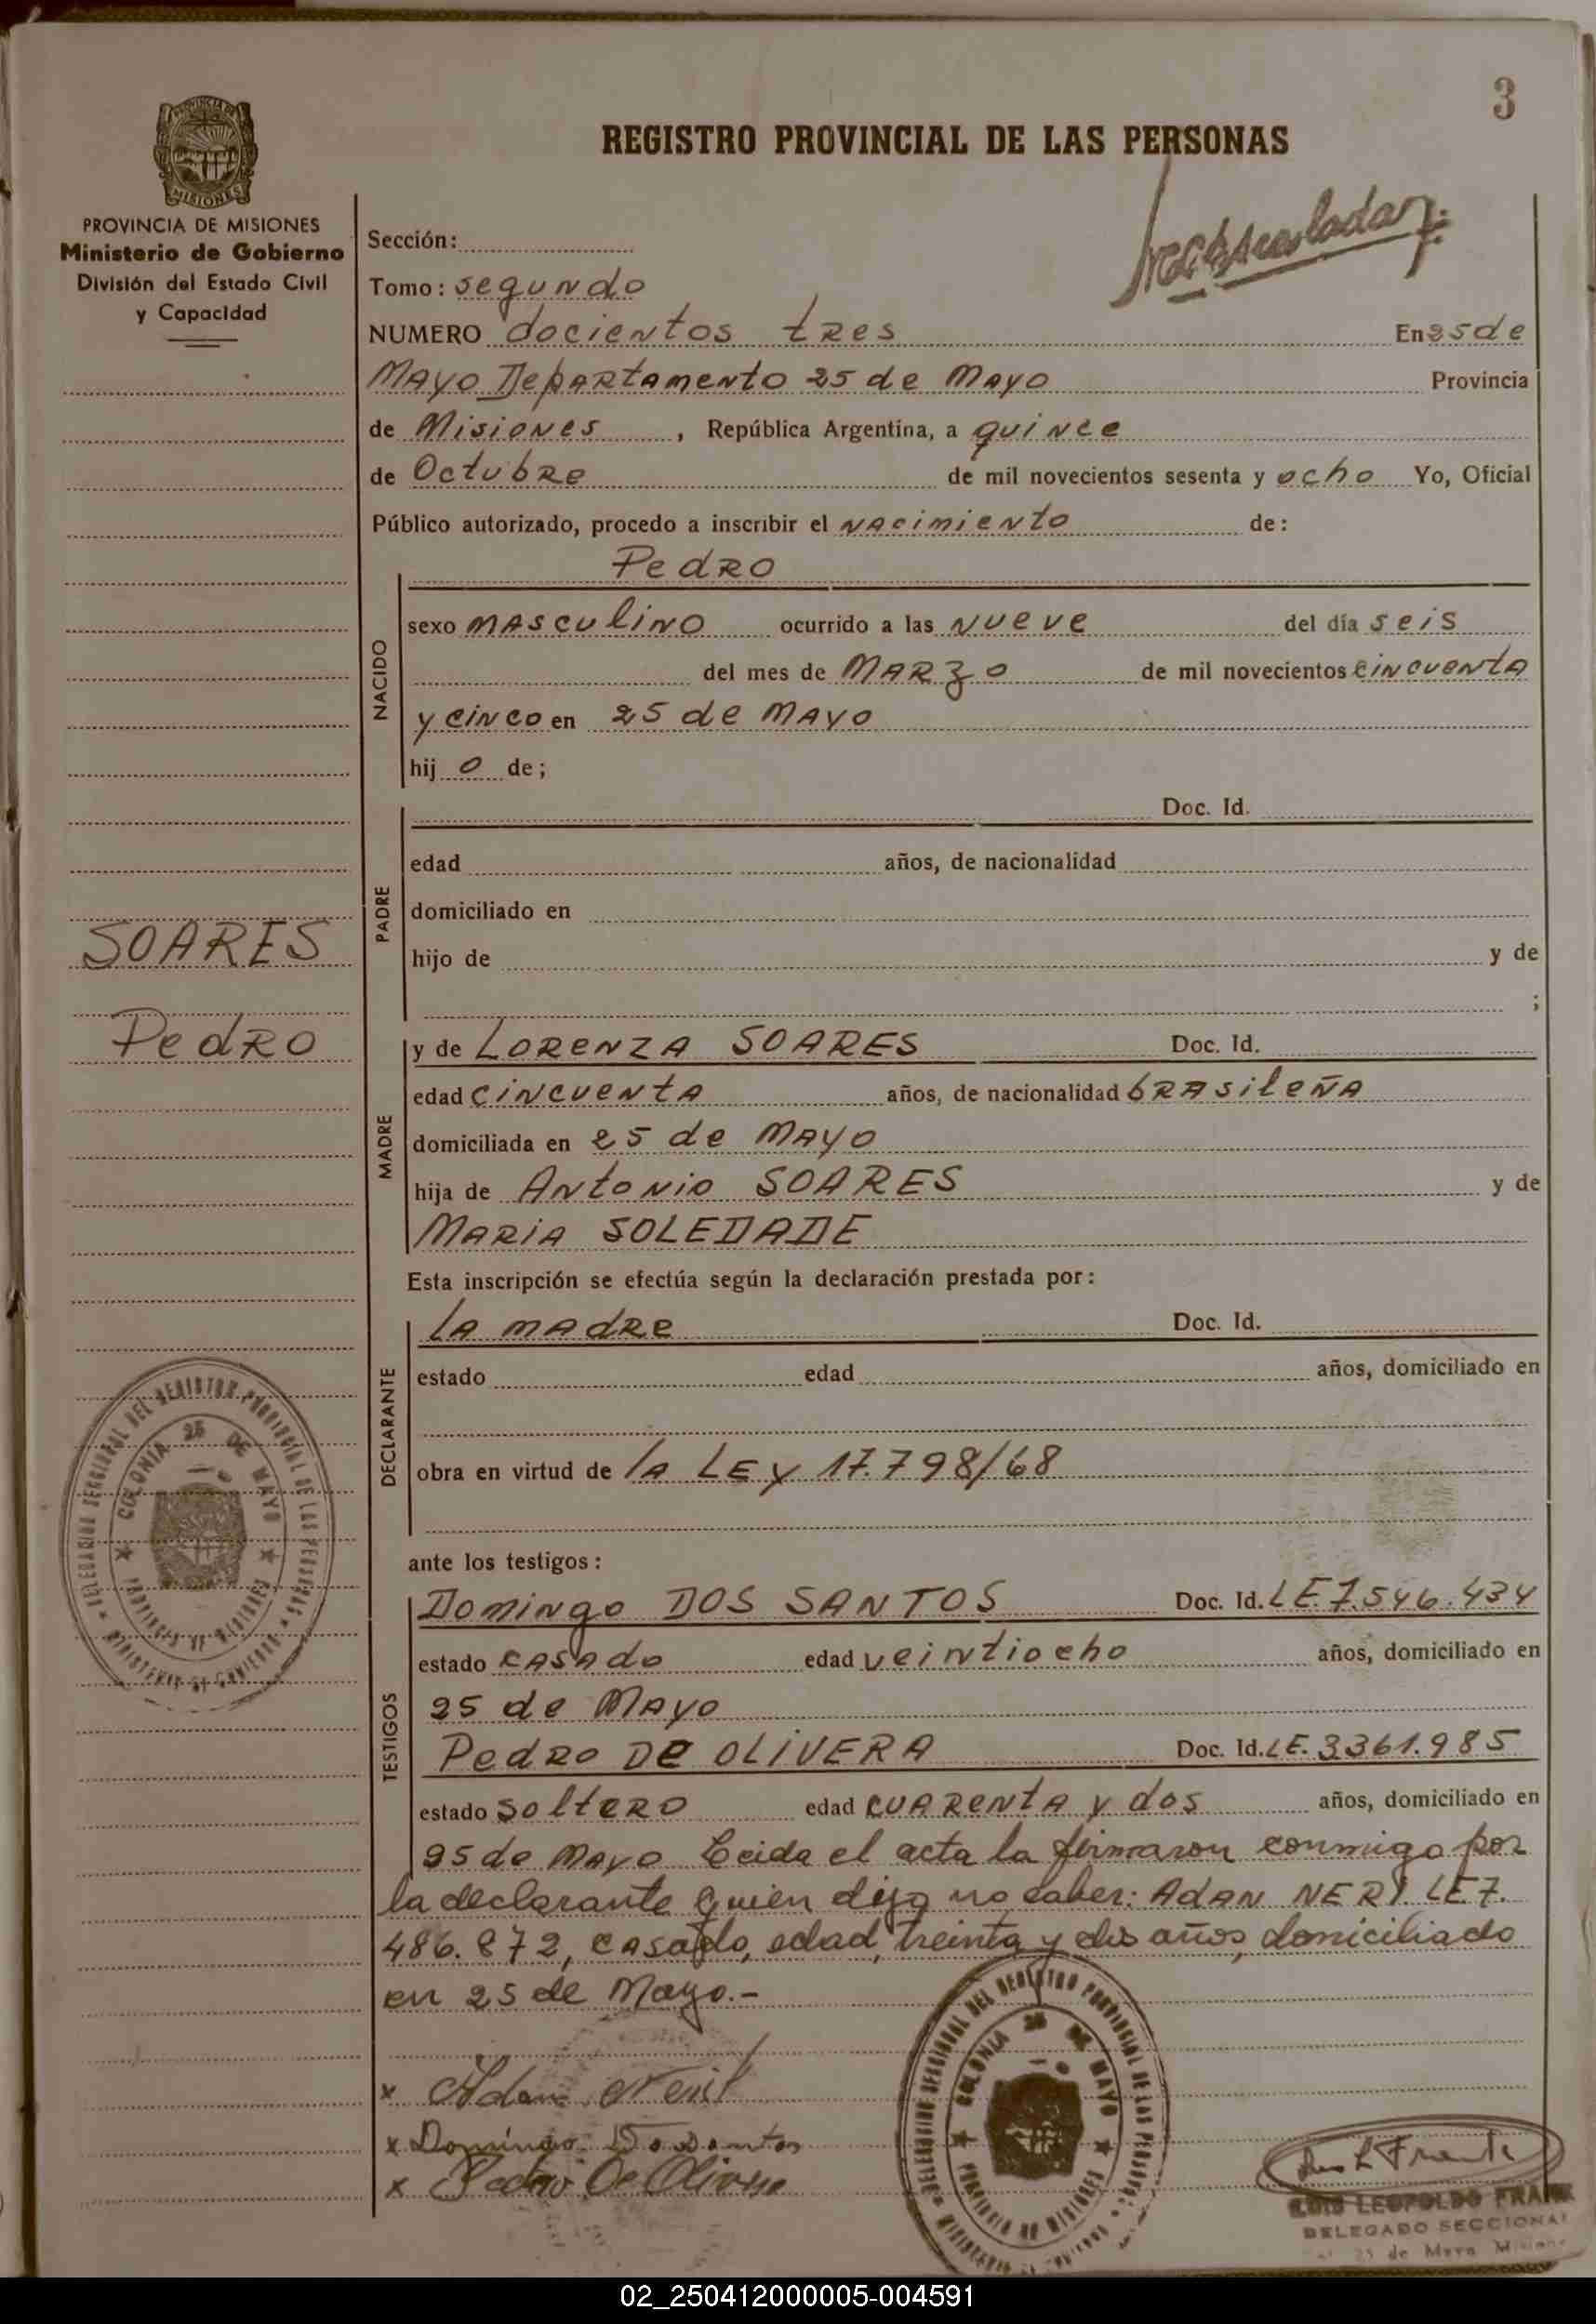 3
REGISTRO PROVINCIAL DE LAS PERSONAS
PROVINCIA DE MISIONES
Ministerio de Gobierno
División del Estado Civil
y Capacidad
Sección:
Tomo: segundo
NUMERO docientos tres En 25 de
Mayo Departamento 25 de Mayo Provincia
de Misiones, República Argentina, a quince
de Octubre de mil novecientos sesenta y ocho Yo, Oficial
Público autorizado, procedo a inscribir el nacimiento de:
Pedro
NACIDO
sexo masculino ocurrido a las nueve del día seis
del mes de Marzo de mil novecientos cincuenta
y cinco en 25 de Mayo
hij o de;
PADRE
Doc. Id.
edad años, de nacionalidad
domiciliado en
hijo de y de
;
SOARES
Pedro
MADRE
y de Lorenza SOARES Doc. Id.
edad cincuenta años, de nacionalidad brasileña
domiciliada en 25 de Mayo
hija de Antonio SOARES y de
Maria SOLEDADE
Esta inscripción se efectúa según la declaración prestada por:
DECLARANTE
la madre Doc. Id.
estado edad años, domiciliado en
obra en virtud de la LEY 17.798/68
ante los testigos:
TESTIGOS
Domingo DOS SANTOS Doc. Id. LE.7.546.434
estado casado edad veintiocho años, domiciliado en
25 de Mayo
Pedro DE OLIVERA Doc. Id. LE. 3361.985
estado soltero edad cuarenta y dos años, domiciliado en
25 de Mayo Leida el acta la firmaron conmigo por
la declarante quien dijo no saber: Adan NERI LE 7.
486.872, casado, edad, treinta y dos años, domiciliado
en 25 de Mayo.-
x Adan Neri
x Domingo Do Santos
x Pedro De Olivera
DELEGACION SECCIONAL DEL REGISTRO PROVINCIAL DE LAS PERSONAS
COLONIA 25 DE MAYO
PROVINCIA DE MISIONES
MINISTERIO DE GOBIERNO
DELEGACION SECCIONAL DEL REGISTRO PROVINCIAL DE LAS PERSONAS
COLONIA 25 DE MAYO
PROVINCIA DE MISIONES
LUIS LEOPOLDO FRANK
DELEGADO SECCIONAL
25 de Mayo Misiones
02_250412000005-004591